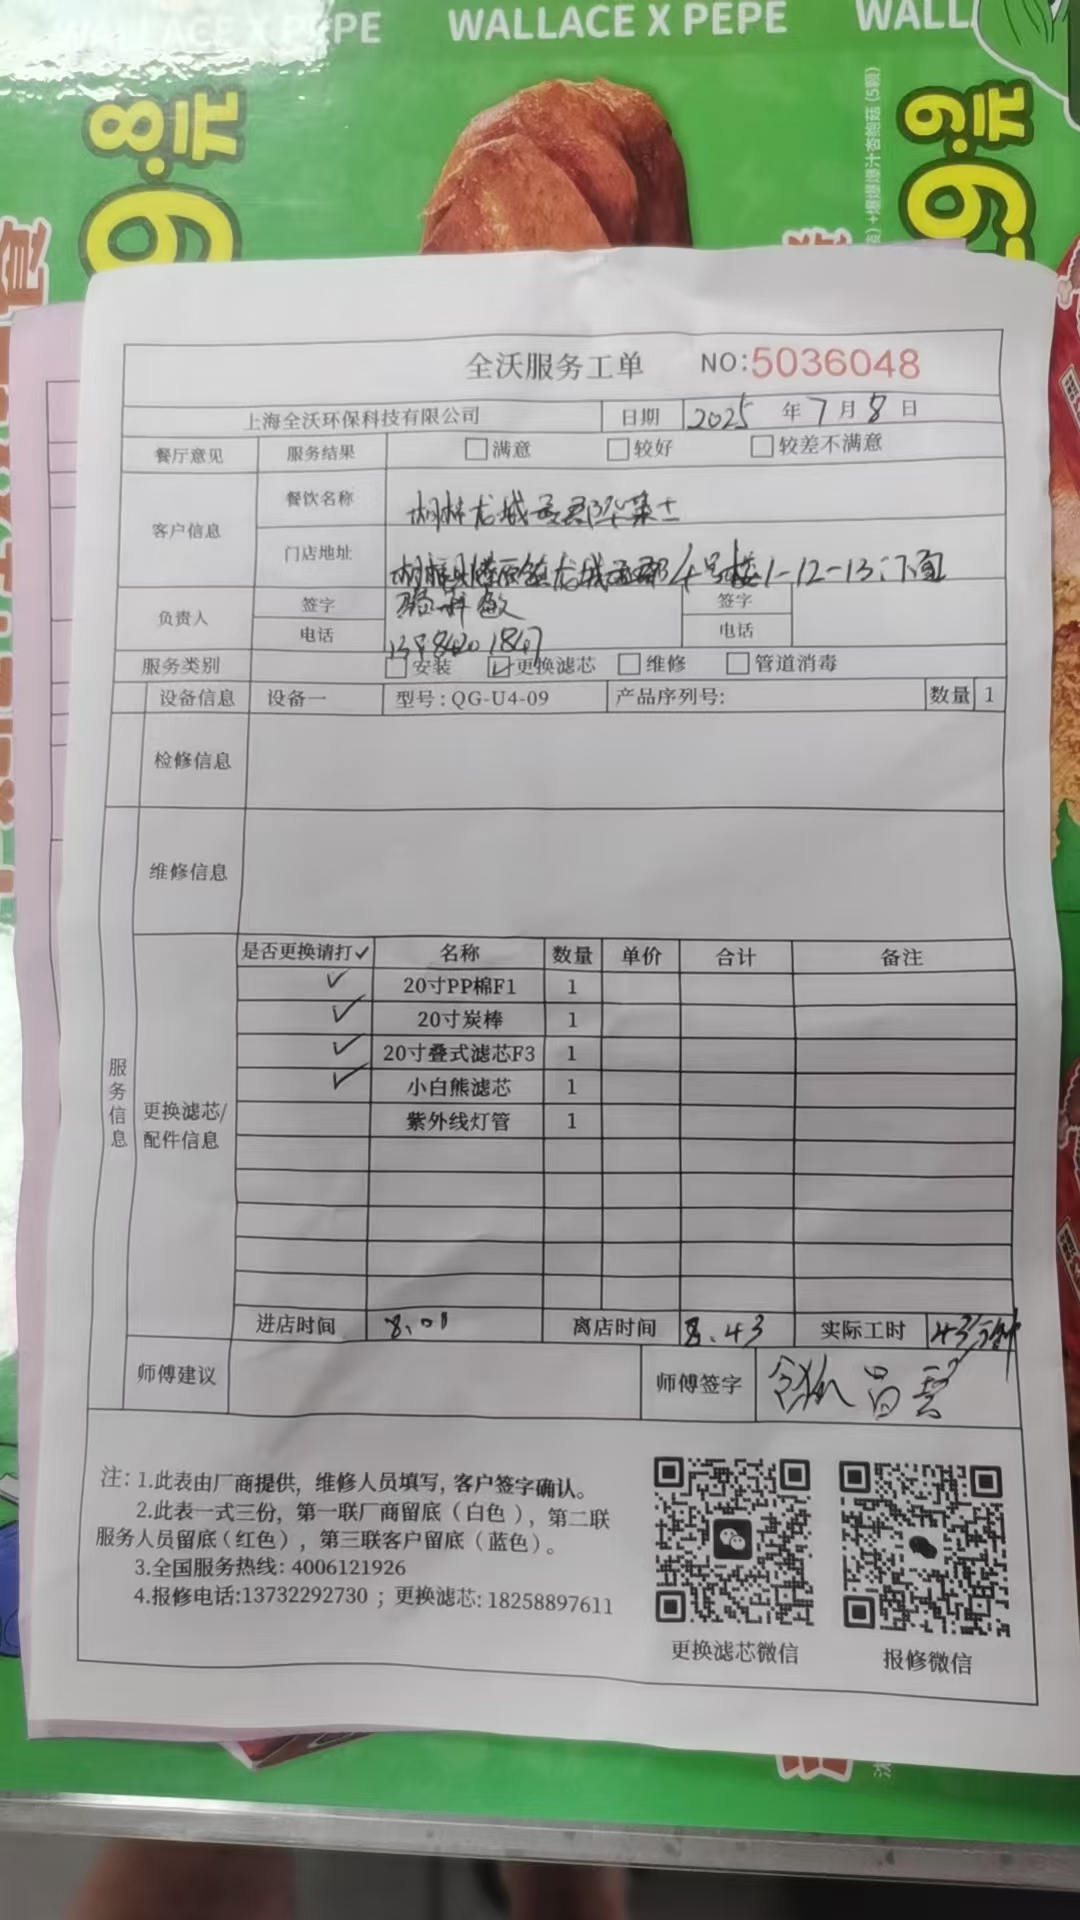 WALLACE X PEPE
WALLACE X PEPE
WALL
9.8元
9.9元
+爆爆爆汁杏鲍菇(5颗)
全沃服务工单 NO:5036048
上海全沃环保科技有限公司 日期 2025年7月8日
餐厅意见 服务结果 满意 较好 较差不满意
客户信息 餐饮名称 龙城 华莱士
门店地址 龙城 号楼1-12-13门面
负责人 签字 签字
电话 电话
服务类别 安装 更换滤芯 维修 管道消毒
设备信息 设备一 型号:QG-U4-09 产品序列号: 数量 1
检修信息
维修信息
服务信息
更换滤芯/配件信息
是否更换请打✓ 名称 数量 单价 合计 备注
✓ 20寸PP棉F1 1
✓ 20寸炭棒 1
✓ 20寸叠式滤芯F3 1
✓ 小白熊滤芯 1
紫外线灯管 1
进店时间 8.01 离店时间 8.43 实际工时 43分钟
师傅建议 师傅签字
注: 1.此表由厂商提供, 维修人员填写, 客户签字确认。
2.此表一式三份, 第一联厂商留底(白色), 第二联
服务人员留底(红色), 第三联客户留底(蓝色)。
3.全国服务热线: 4006121926
4.报修电话:13732292730 ; 更换滤芯: 18258897611
更换滤芯微信 报修微信